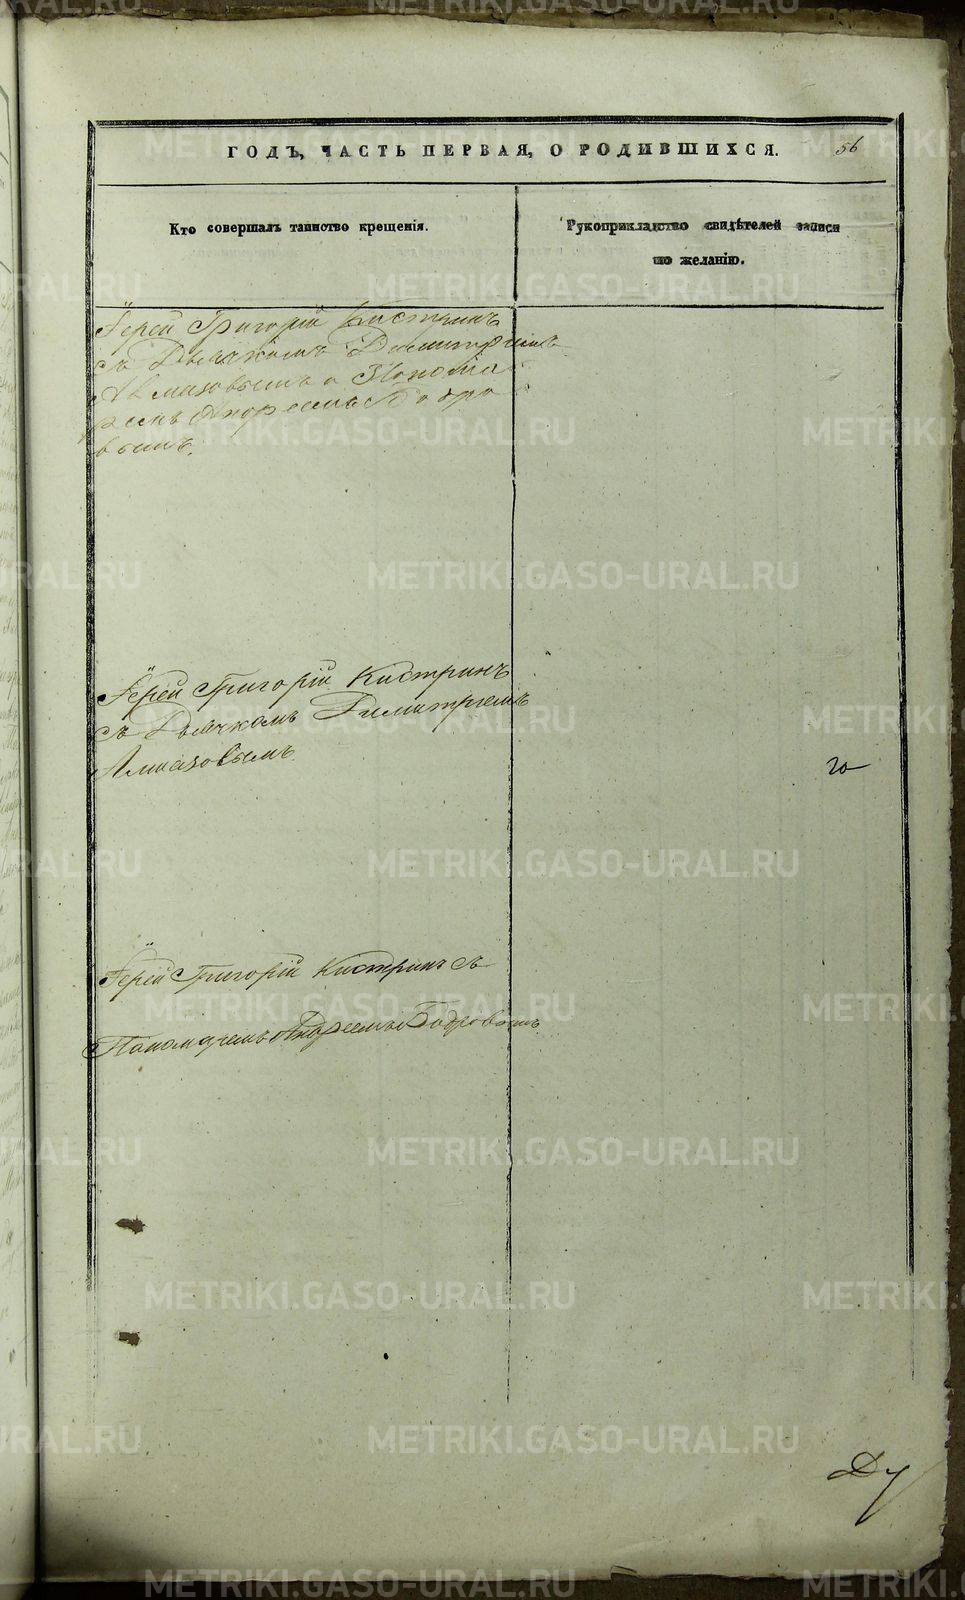 ГОДЪ, ЧАСТЬ ПЕРВАЯ, О РОДИВШИХСЯ. 56
Кто совершалъ таинство крещенія.
Рукоприкладство свидѣтелей записи
по желанію.
Іерей Григорій Кистринъ
съ Дьячкомъ Димитріемъ
Алмазовымъ и Понома
ремъ Андреемъ Бобро
вымъ.
Іерей Григорій Кистринъ
съ Дьячкомъ Димитріемъ
Алмазовымъ.
го
Іерей Григорій Кистринъ съ
Пономаремъ Андреемъ Бобровымъ
Ду
METRIKI.GASO-URAL.RU